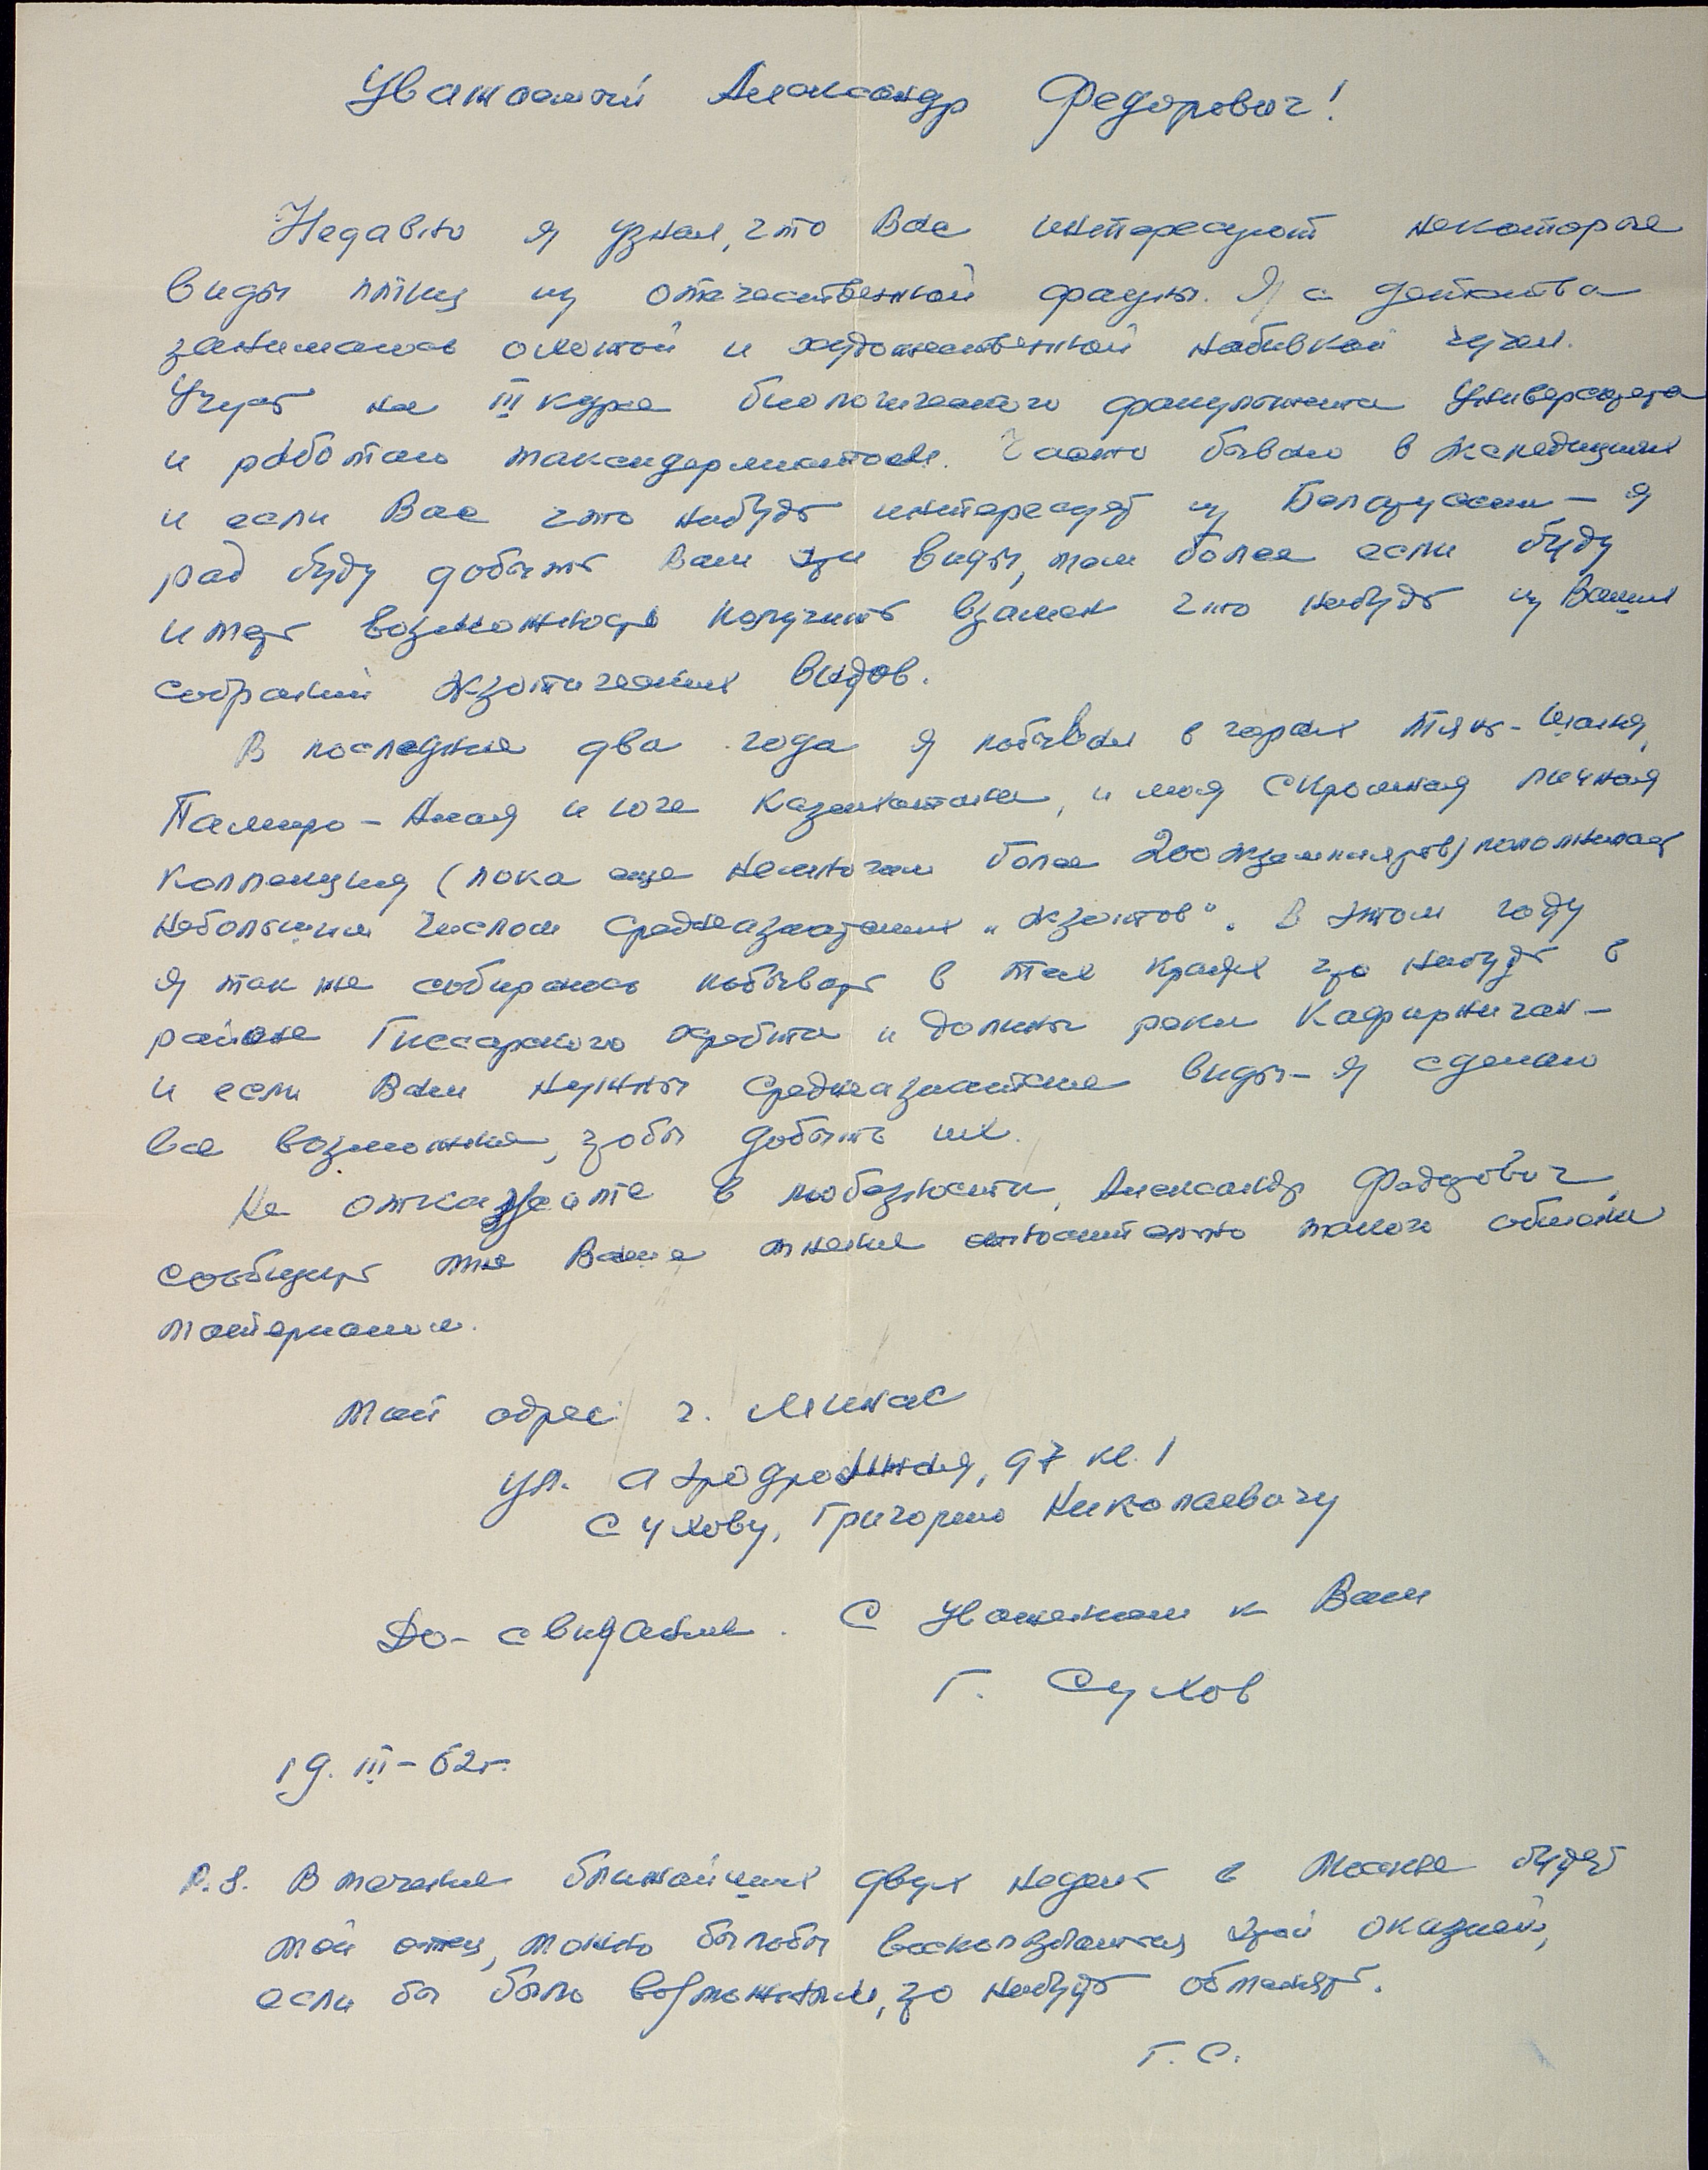 Уважаемый Александр Федорович!
Недавно я узнал, что Вас интересуют некоторые
виды птиц из отечественной фауны. Я с детства
занимаюсь охотой и художественной набивкой чучел.
Учусь на III курсе биологического факультета Университета
и работаю таксидермистом. Часто бываю в экспедициях
и если Вас что нибудь интересует из Белоруссии – я
рад буду добыть Вам эти виды, тем более если буду
иметь возможность получить взамен что нибудь из Ваших
собраний экзотических видов.
В последние два года я побывал в горах Тянь-Шаня,
Памиро-Алая и юге Казахстана, и моя скромная личная
коллекция (пока еще немногим более 200 экземпляров) пополнилась
небольшим числом среднеазиатских „экзотов“. В этом году
я так же собираюсь побывать в тех краях что нибудь в
районе Гиссарского хребта и долины реки Кафирниган –
и если Вам нужны среднеазиатские виды – я сделаю
все возможное, чтобы добыть их.
Не откажите в любезности, Александр Федорович,
сообщить мне Ваше мнение относительно такого обмена
материалом.
Мой адрес: г. Минск
ул. Аэродромная, 97 кв. 1
Сухову, Григорию Николаевичу
До-свидание. С уважением к Вам
Г. Сухов
19. III – 62 г.
P.S. В течение ближайших двух недель в Москве будет
мой отец, можно было бы воспользоваться этой оказией,
если бы было возможным, что нибудь обменять.
Г. С.